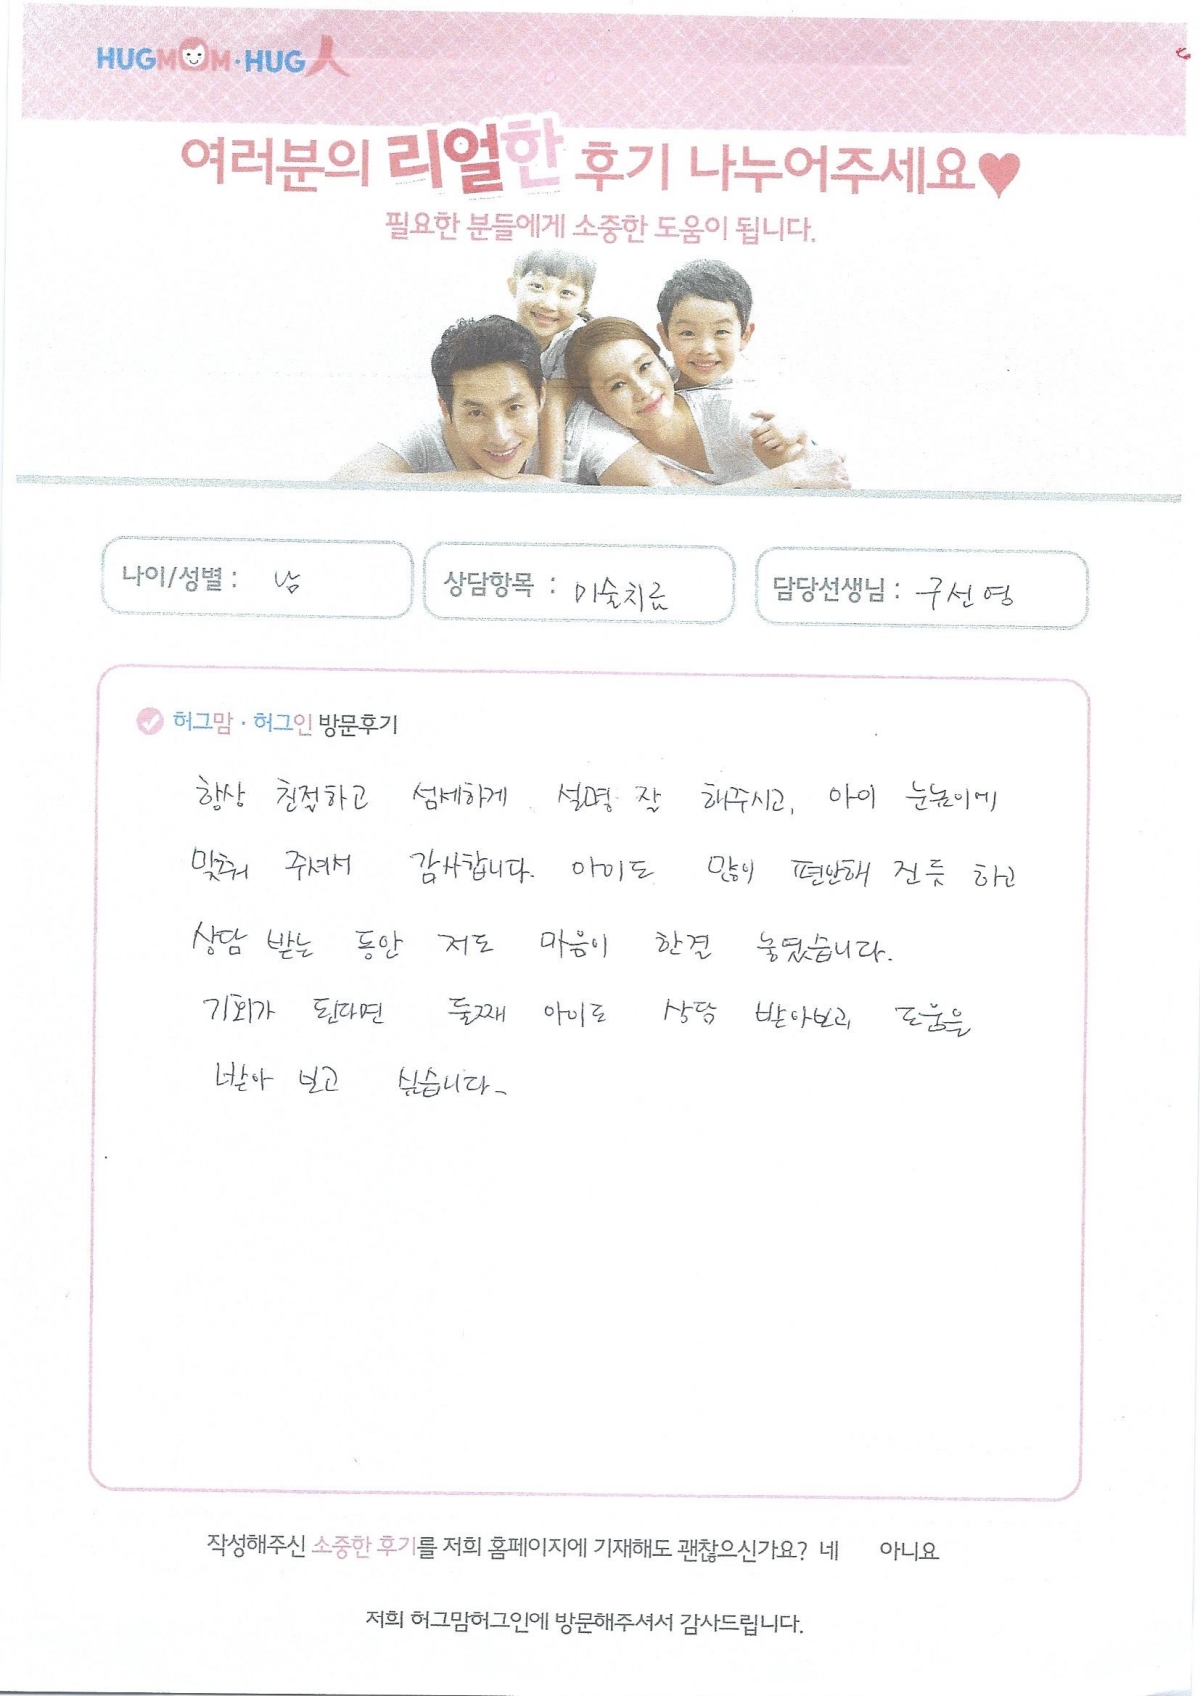 HUGMOM·HUG人
여러분의 리얼한 후기 나누어주세요♥
필요한 분들에게 소중한 도움이 됩니다.
나이/성별 : 남
상담항목 : 미술치료
담당선생님 : 구선영
허그맘 · 허그인 방문후기
항상 친절하고 섬세하게 설명 잘 해주시고, 아이 눈높이에
맞춰 주셔서 감사합니다. 아이도 많이 편안해 진듯 하고
상담 받는 동안 저도 마음이 한결 놓였습니다.
기회가 된다면 둘째 아이도 상담 받아보고 도움을
받아 보고 싶습니다~
작성해주신 소중한 후기를 저희 홈페이지에 기재해도 괜찮으신가요? 네 아니요
저희 허그맘허그인에 방문해주셔서 감사드립니다.